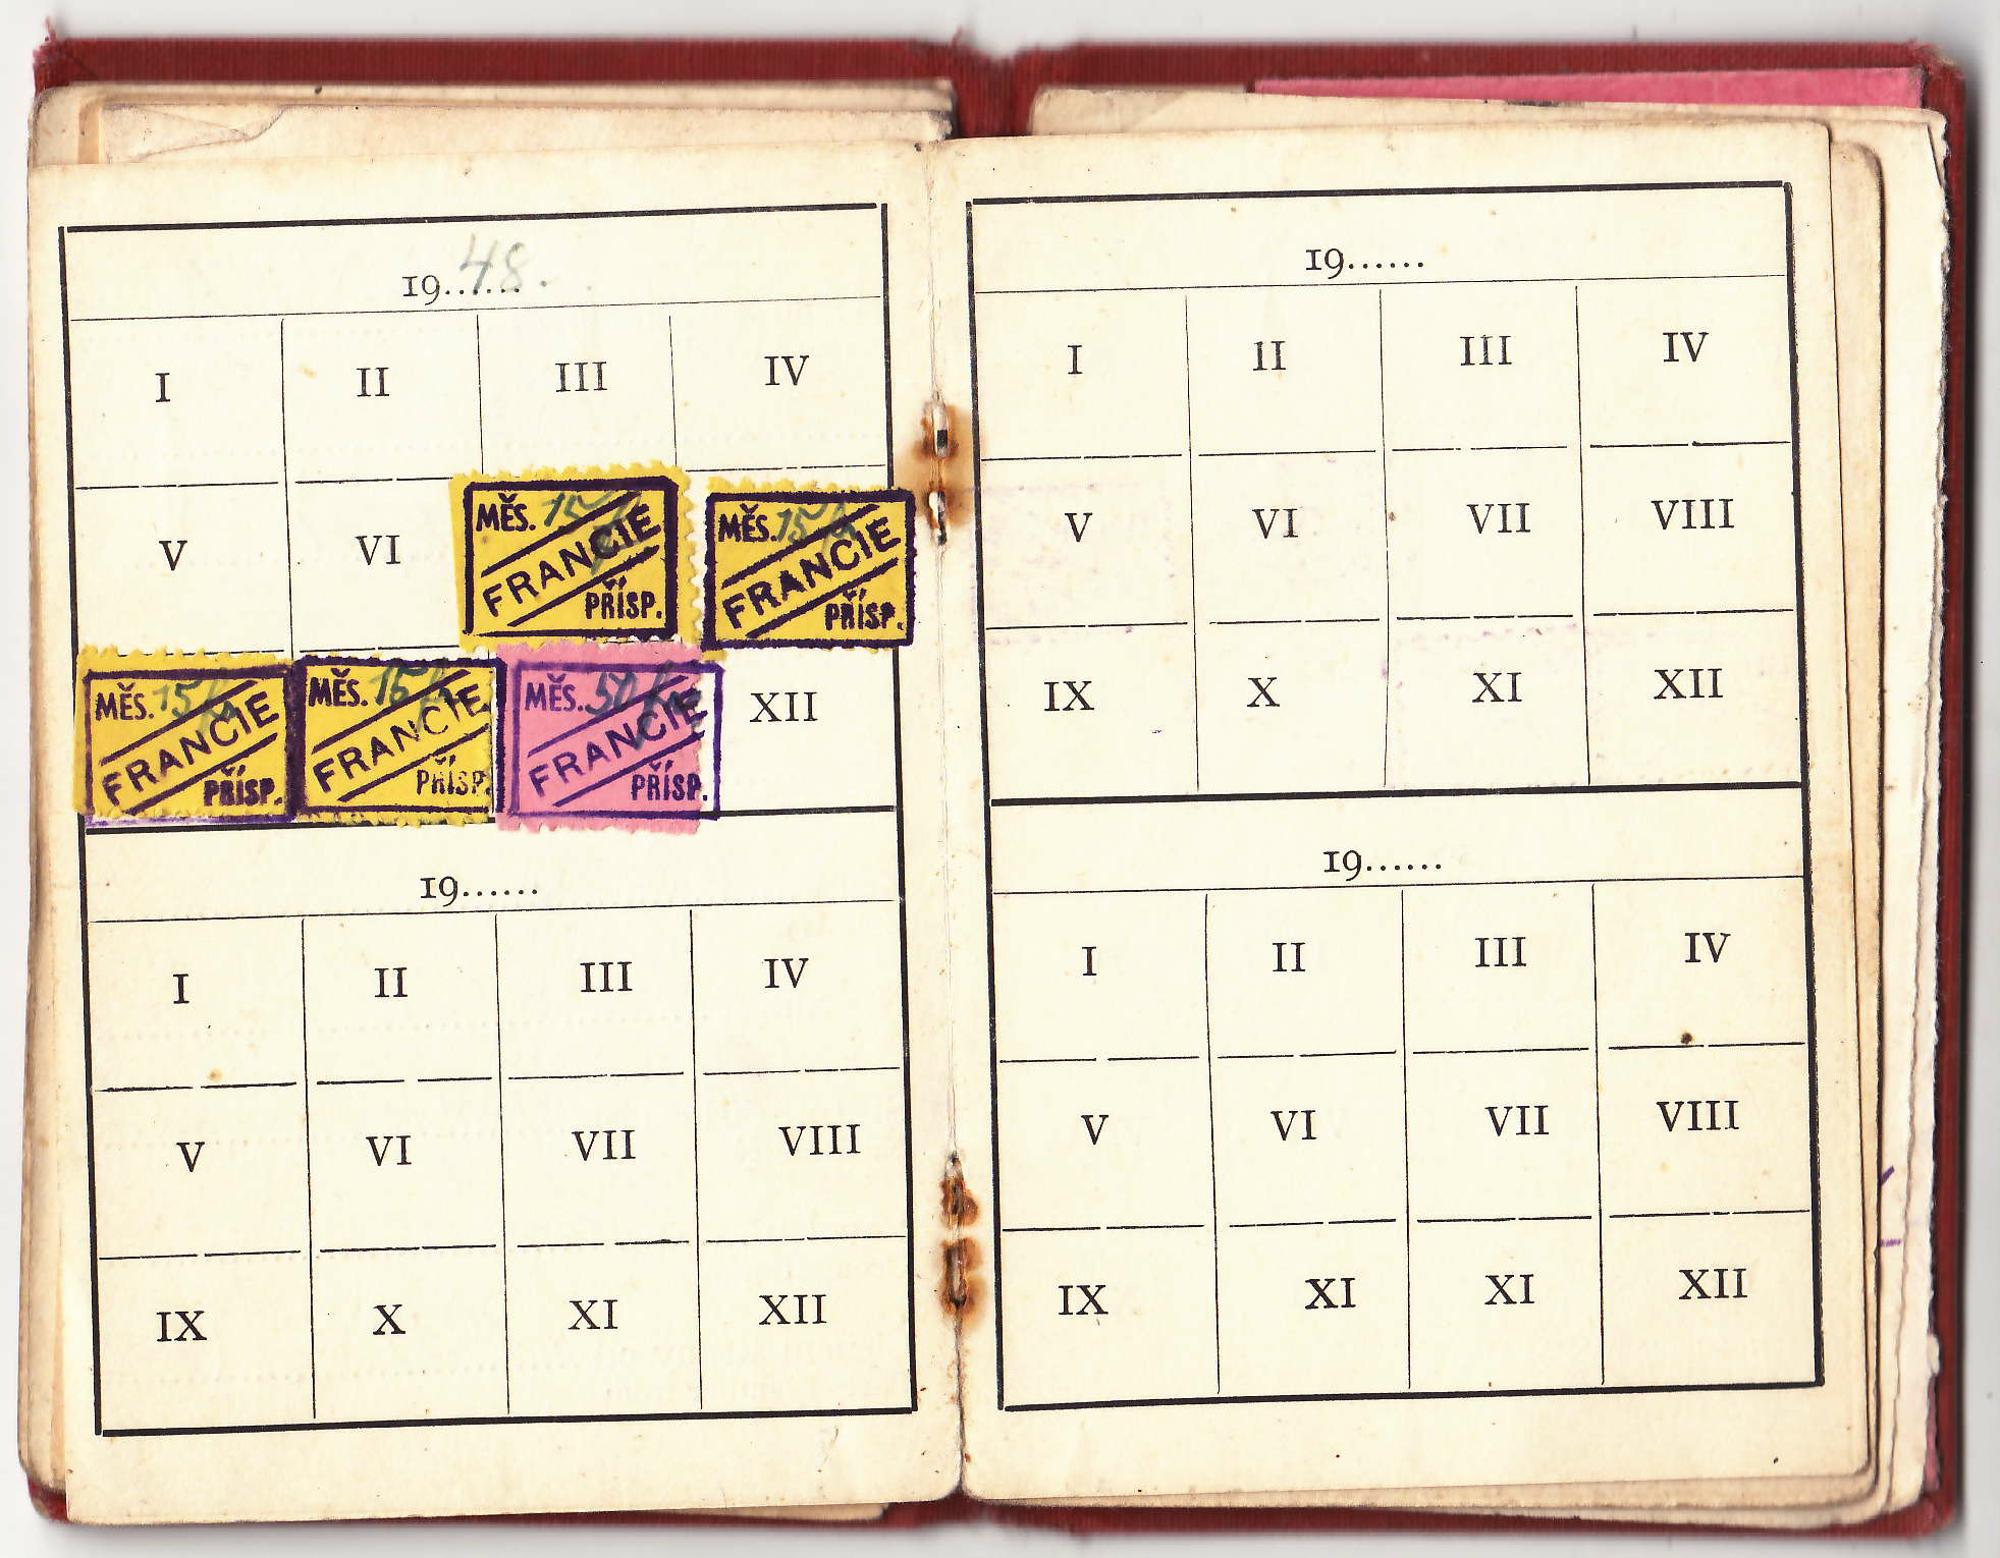 1948.
I II III IV
V VI
MĚS. 15 k
FRANCIE
PŘÍSP.
MĚS. 15 k
FRANCIE
PŘÍSP.
MĚS. 15 k
FRANCIE
PŘÍSP.
MĚS. 15 k
FRANCIE
PŘÍSP.
MĚS. 50 k
FRANCIE
PŘÍSP.
XII
19......
I II III IV
V VI VII VIII
IX X XI XII
19......
I II III IV
V VI VII VIII
IX X XI XII
19......
I II III IV
V VI VII VIII
IX XI XI XII